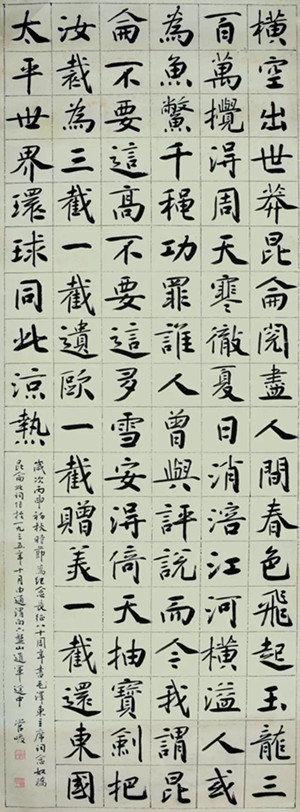 橫空出世莽昆侖閱盡人間春色飛起玉龍三
百萬攪淂周天寒徹夏日消溶江河橫溢人或
為魚鱉千穐功罪誰人曾與評說而今我謂昆
侖不要這高不要這多雪安淂倚天抽寶劍把
汝裁為三截一截遺歐一截贈美一截還東國
太平世界環球同此涼熱
歲次丙申初秋時節為紀念長征八十周年書毛澤東主席詞念奴嬌
昆侖此詞作於一九三五年十月由通渭向六盤山進軍途中 管峻